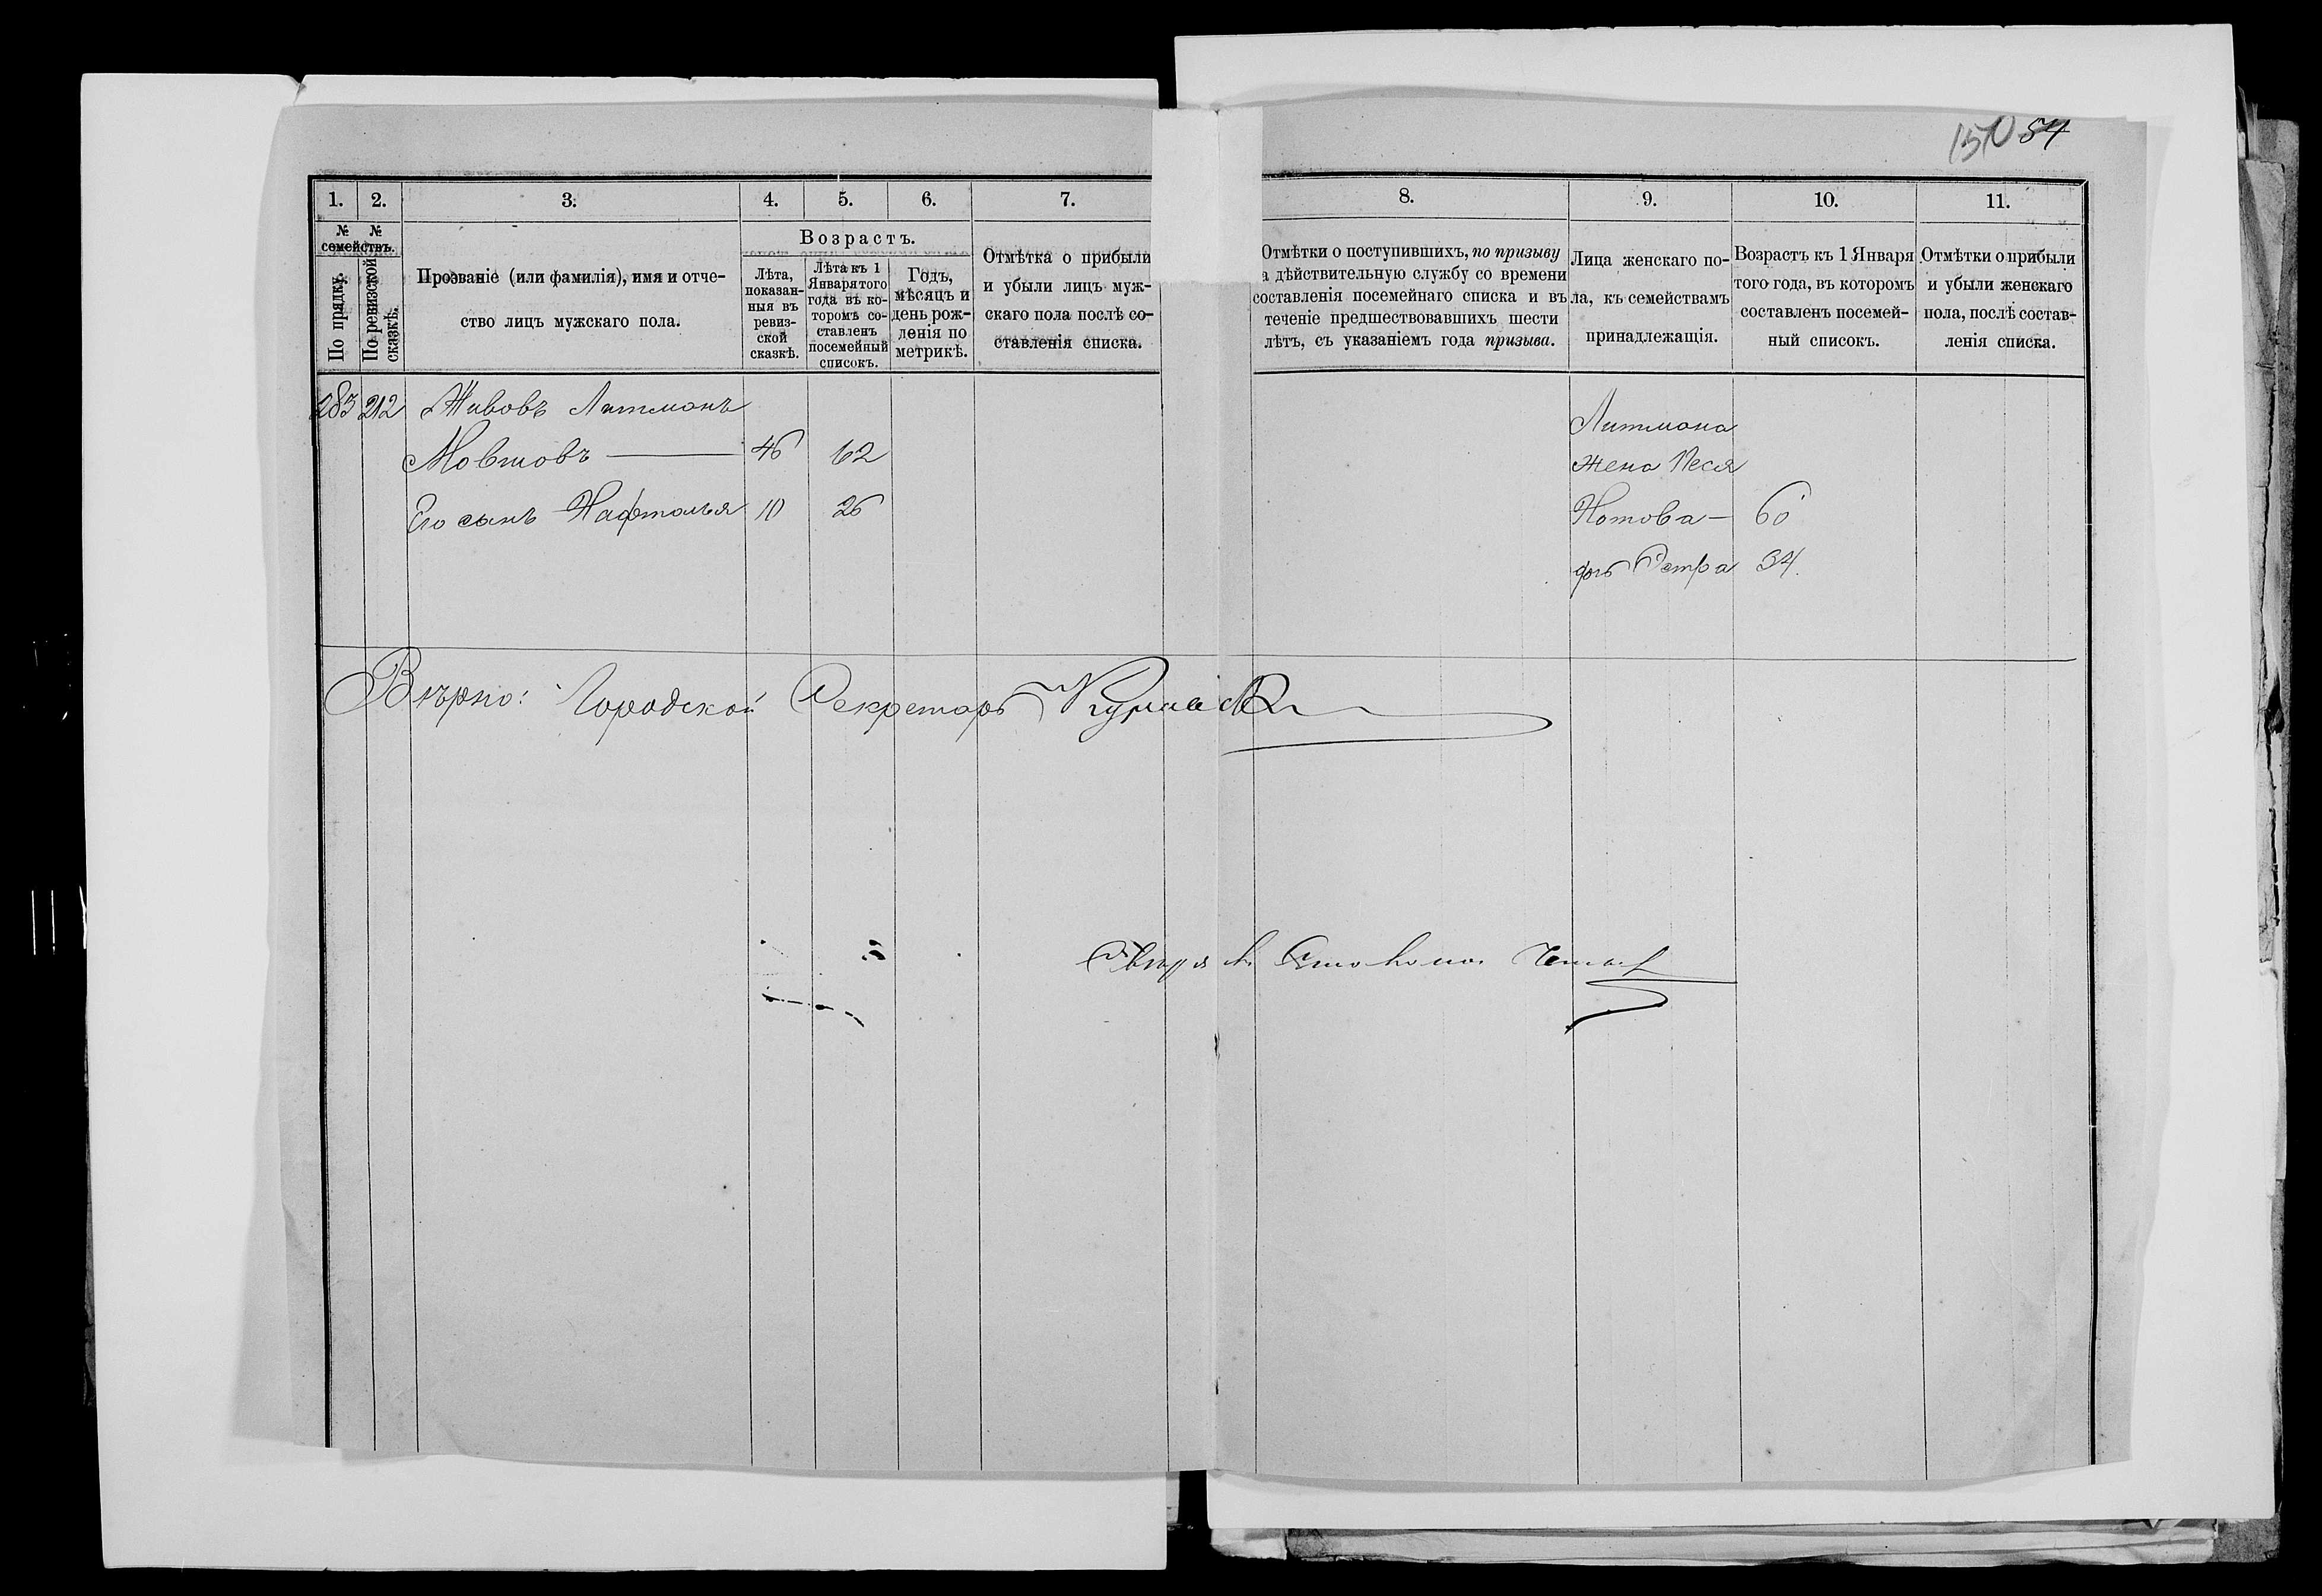 150 54
1. 2. 3. 4. 5. 6. 7. 8. 9. 10. 11.
№ № семействъ.
По прядку.
По ревизской сказкѣ.
Прозваніе (или фамилія), имя и отче-
ство лицъ мужскаго пола.
Возрастъ.
Лѣта,
показан-
ныя въ
ревиз-
ской
сказкѣ.
Лѣта къ 1
Января того
года въ ко-
торомъ со-
ставленъ
посемейный
списокъ.
Годъ,
мѣсяцъ и
день рож-
денія по
метрикѣ.
Отмѣтка о прибыли
и убыли лицъ муж-
скаго пола послѣ со-
ставленія списка.
Отмѣтки о поступившихъ, по призыву
а дѣйствительную службу со времени
составленія посемейнаго списка и въ
теченіе предшествовавшихъ шести
лѣтъ, съ указаніемъ года призыва.
Лица женскаго по-
ла, къ семействамъ
принадлежащія.
Возрастъ къ 1 Января
того года, въ которомъ
составленъ посемей-
ный списокъ.
Отмѣтки о прибыли
и убыли женскаго
пола, послѣ состав-
ленія списка.
283 212 Живовъ Литманъ
Мовшовъ 46 62
Его сынъ Нафтолья 10 26
Литмана
жена Песя
Нотова 60
дочь Эстра 34.
Вѣрно: Городской Секретарь